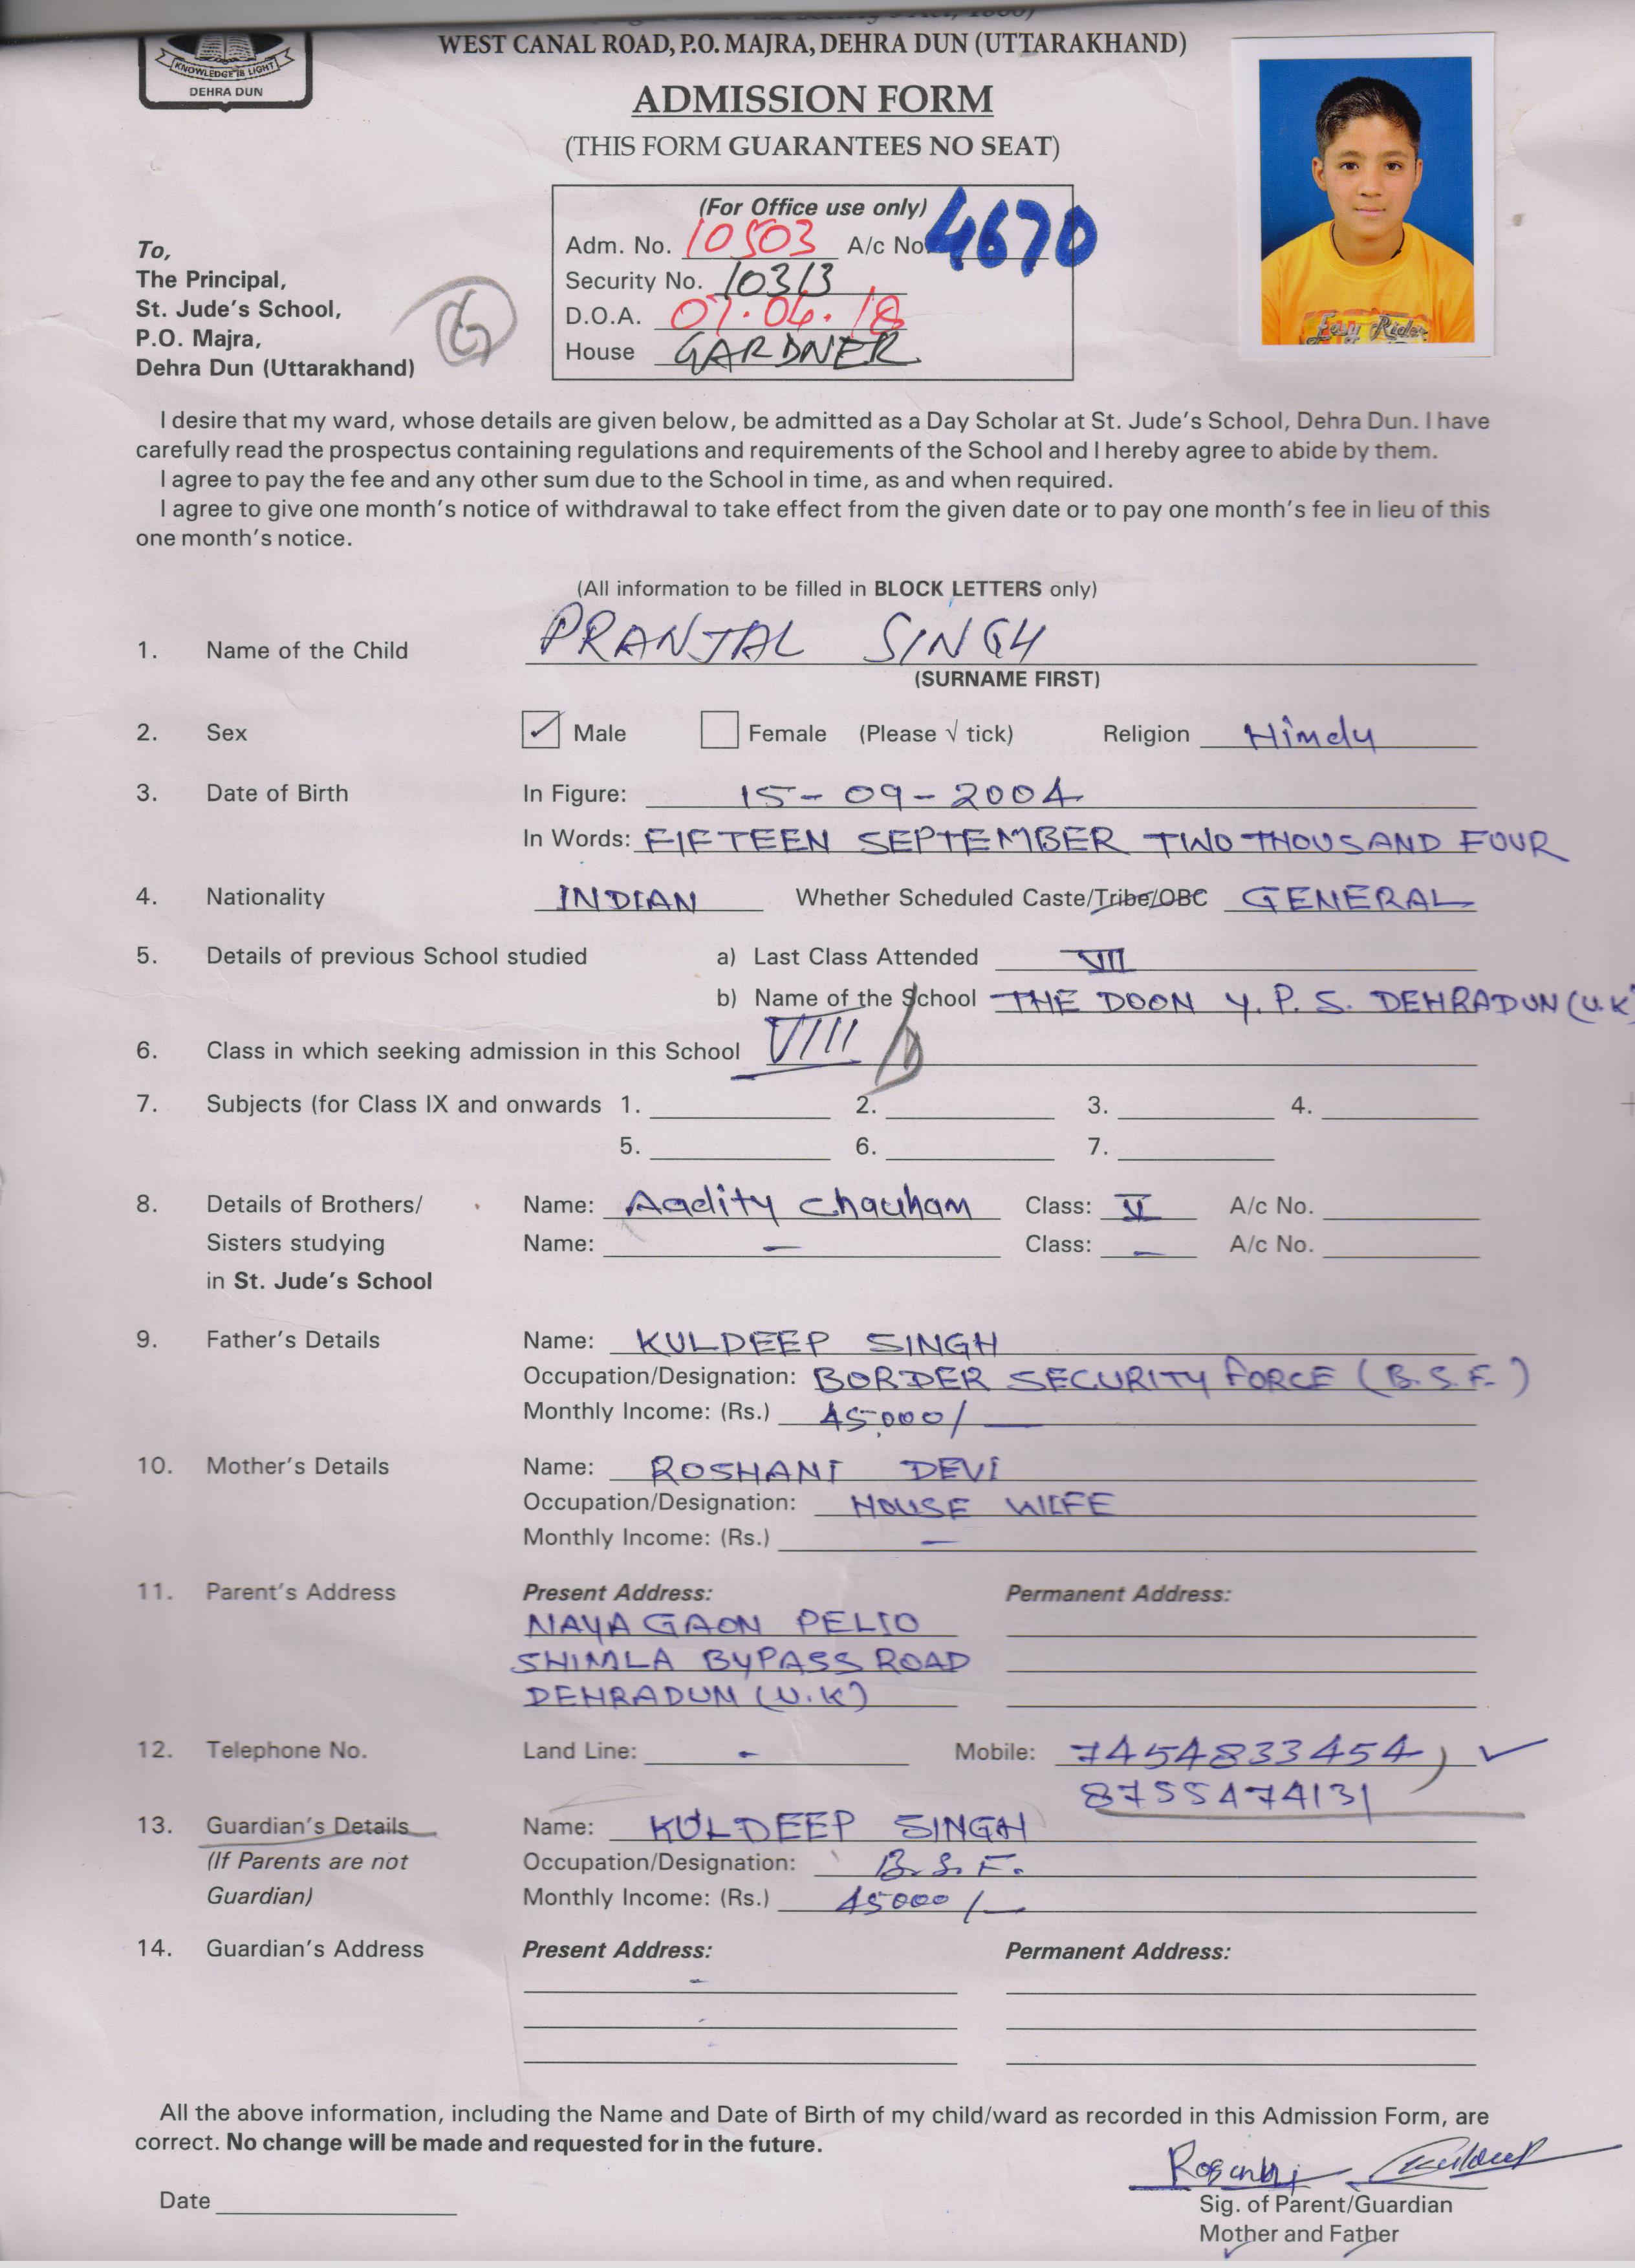 WEST CANAL ROAD, P.O. MAJRA, DEHRA DUN (UTTARAKHAND)
KNOWLEDGE IS LIGHT
DEHRA DUN
ADMISSION FORM
(THIS FORM GUARANTEES NO SEAT)
(For Office use only)
Adm. No. 10503 A/c No. 4670
Security No. 10313
D.O.A. 07.04.18
House GARDNER
To,
The Principal,
St. Jude's School,
P.O. Majra,
Dehra Dun (Uttarakhand)
G
Easy Rider
I desire that my ward, whose details are given below, be admitted as a Day Scholar at St. Jude's School, Dehra Dun. I have
carefully read the prospectus containing regulations and requirements of the School and I hereby agree to abide by them.
I agree to pay the fee and any other sum due to the School in time, as and when required.
I agree to give one month's notice of withdrawal to take effect from the given date or to pay one month's fee in lieu of this
one month's notice.
(All information to be filled in BLOCK LETTERS only)
1. Name of the Child PRANJAL SINGH
(SURNAME FIRST)
2. Sex ✓ Male Female (Please √ tick) Religion Hindu
3. Date of Birth In Figure: 15-09-2004
In Words: FIFTEEN SEPTEMBER TWO THOUSAND FOUR
4. Nationality INDIAN Whether Scheduled Caste/Tribe/OBC GENERAL
5. Details of previous School studied a) Last Class Attended VII
b) Name of the School THE DOON Y. P. S. DEHRADUN (U.K
6. Class in which seeking admission in this School VIII
7. Subjects (for Class IX and onwards 1. 2. 3. 4.
5. 6. 7.
8. Details of Brothers/ Name: Aadity Chauhan Class: V A/c No.
Sisters studying Name: — Class: — A/c No.
in St. Jude's School
9. Father's Details Name: KULDEEP SINGH
Occupation/Designation: BORDER SECURITY FORCE (B.S.F.)
Monthly Income: (Rs.) 45,000/—
10. Mother's Details Name: ROSHANI DEVI
Occupation/Designation: HOUSE WIFE
Monthly Income: (Rs.) —
11. Parent's Address Present Address: Permanent Address:
NAYA GAON PELIO
SHIMLA BYPASS ROAD
DEHRADUN (U.K)
12. Telephone No. Land Line: - Mobile: 7454833454, ✓
8755474131
13. Guardian's Details Name: KULDEEP SINGH
(If Parents are not Occupation/Designation: B.S.F.
Guardian) Monthly Income: (Rs.) 45000/—
14. Guardian's Address Present Address: Permanent Address:
-
-
-
All the above information, including the Name and Date of Birth of my child/ward as recorded in this Admission Form, are
correct. No change will be made and requested for in the future.
Kuldeep
Date
Sig. of Parent/Guardian
Mother and Father